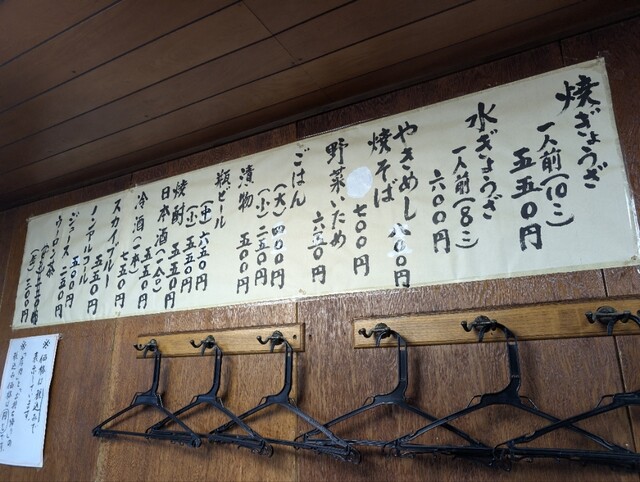 焼ぎょうざ
一人前(10コ)
五五〇円
水ぎょうざ
一人前(8コ)
六〇〇円
やきめし 八〇〇円
焼そば 七〇〇円
野菜いため
六五〇円
ごはん
(大)四〇〇円
(小)二五〇円
漬物 五〇〇円
瓶ビール
(中)六五〇円
(小)五五〇円
焼酎 五五〇円
日本酒(一合)
冷酒(一本)
七五〇円
スカイブルー
五五〇円
ノンアルコール
五〇〇円
ジュース 二五〇円
ウーロン茶
※価格は税込みで
表示してます。